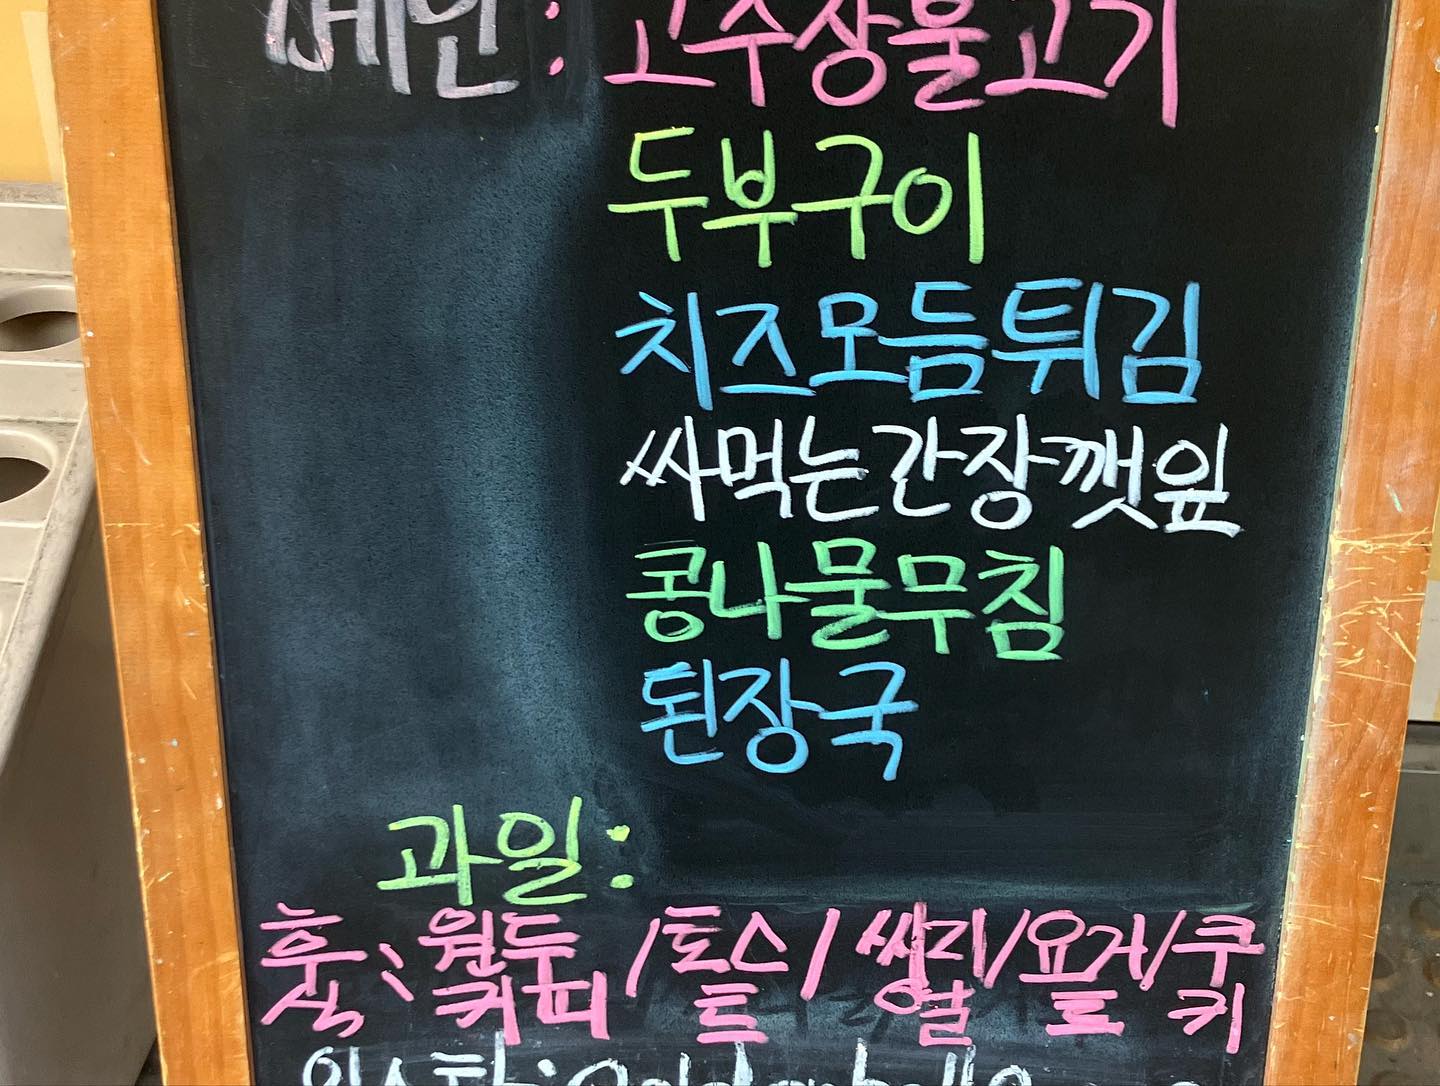 메인: 고추장불고기
두부구이
치즈모듬튀김
싸먹는간장깻잎
콩나물무침
된장국
과일:
후식: 원두커피/토스트/씨리얼/요거트/쿠키
인스타: